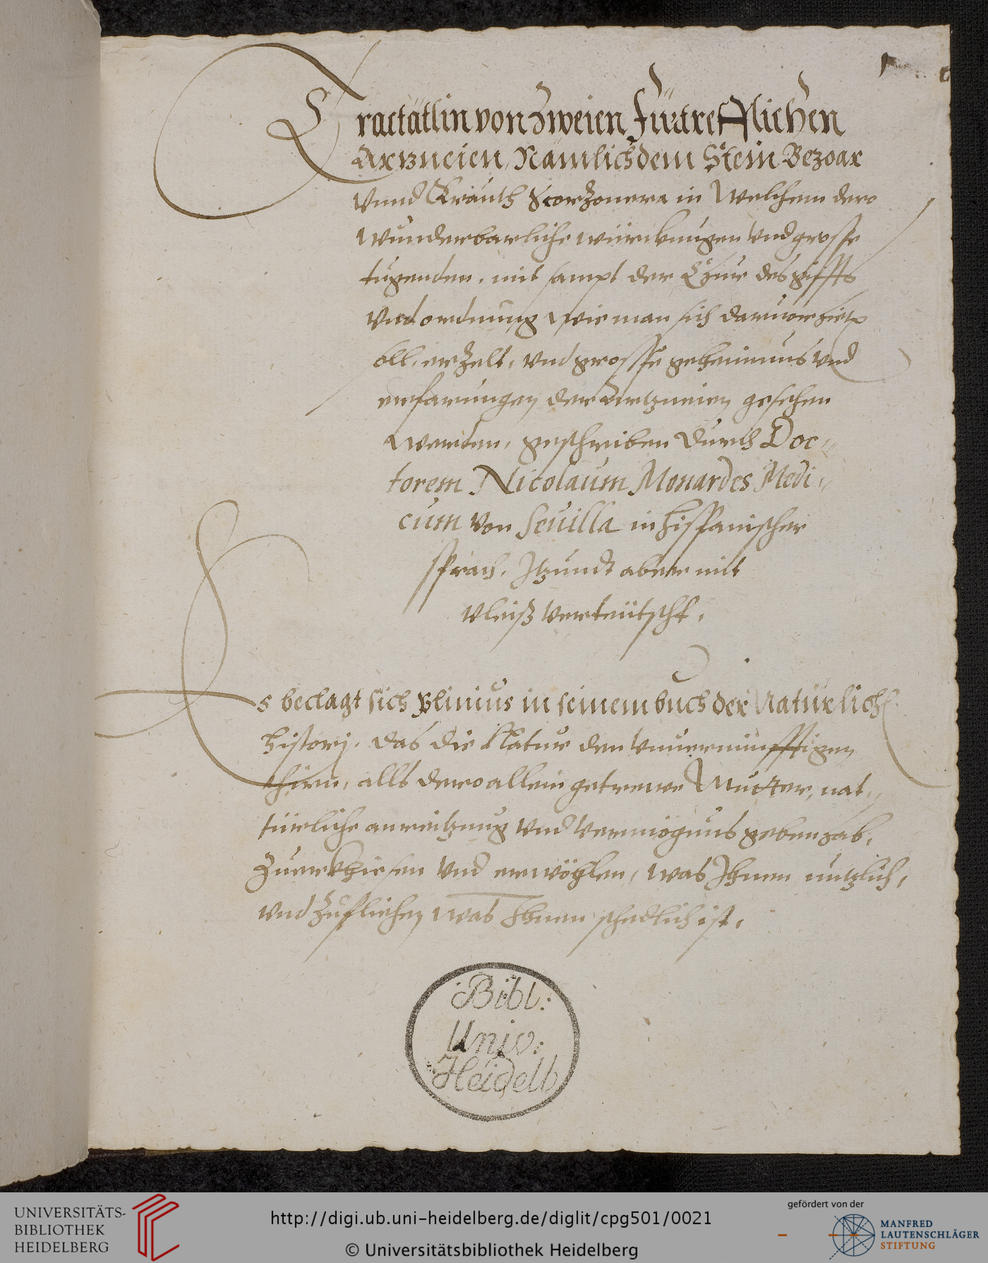 Tractätlin von Zweien Fürtrefflichen
Artzneien, Nämlich dem Stein Bezoar
Vnnd Kräuth Scorzonera in Welchem dero
wunderbarliche würckungen vnd grosse
tugenden, mit sampt der Chur des giffts
vnd ordnung wie man sich daruor hieten
soll, erzelt, vnd grosse geheimnus vnd
erfarungen der Artzneien gesehen
werden, geschriben durch Doc-
torem Nicolaum Monardes Medi-
cum von Seuilla in hispanischer
sprach. Jtzundt aber mit
vleiß verteütscht.
Es beclagt sich Plinius in seinem buch der Natürlich
histori, das die Natur den vnuernünfftigen
thirn, allß dero allein getrewe Mutter, nat-
türliche anreitzung vnd vermögnus geben hab,
Zuerkhiesen vnd erwöhlen, was Jhnen nutzlich,
vnd Zufliehen was Jhnen schedlich ist.
Bibl:
Univ:
Heidelb
UNIVERSITÄTS-
BIBLIOTHEK
HEIDELBERG
http://digi.ub.uni-heidelberg.de/diglit/cpg501/0021
© Universitätsbibliothek Heidelberg
gefördert von der
MANFRED
LAUTENSCHLÄGER
STIFTUNG